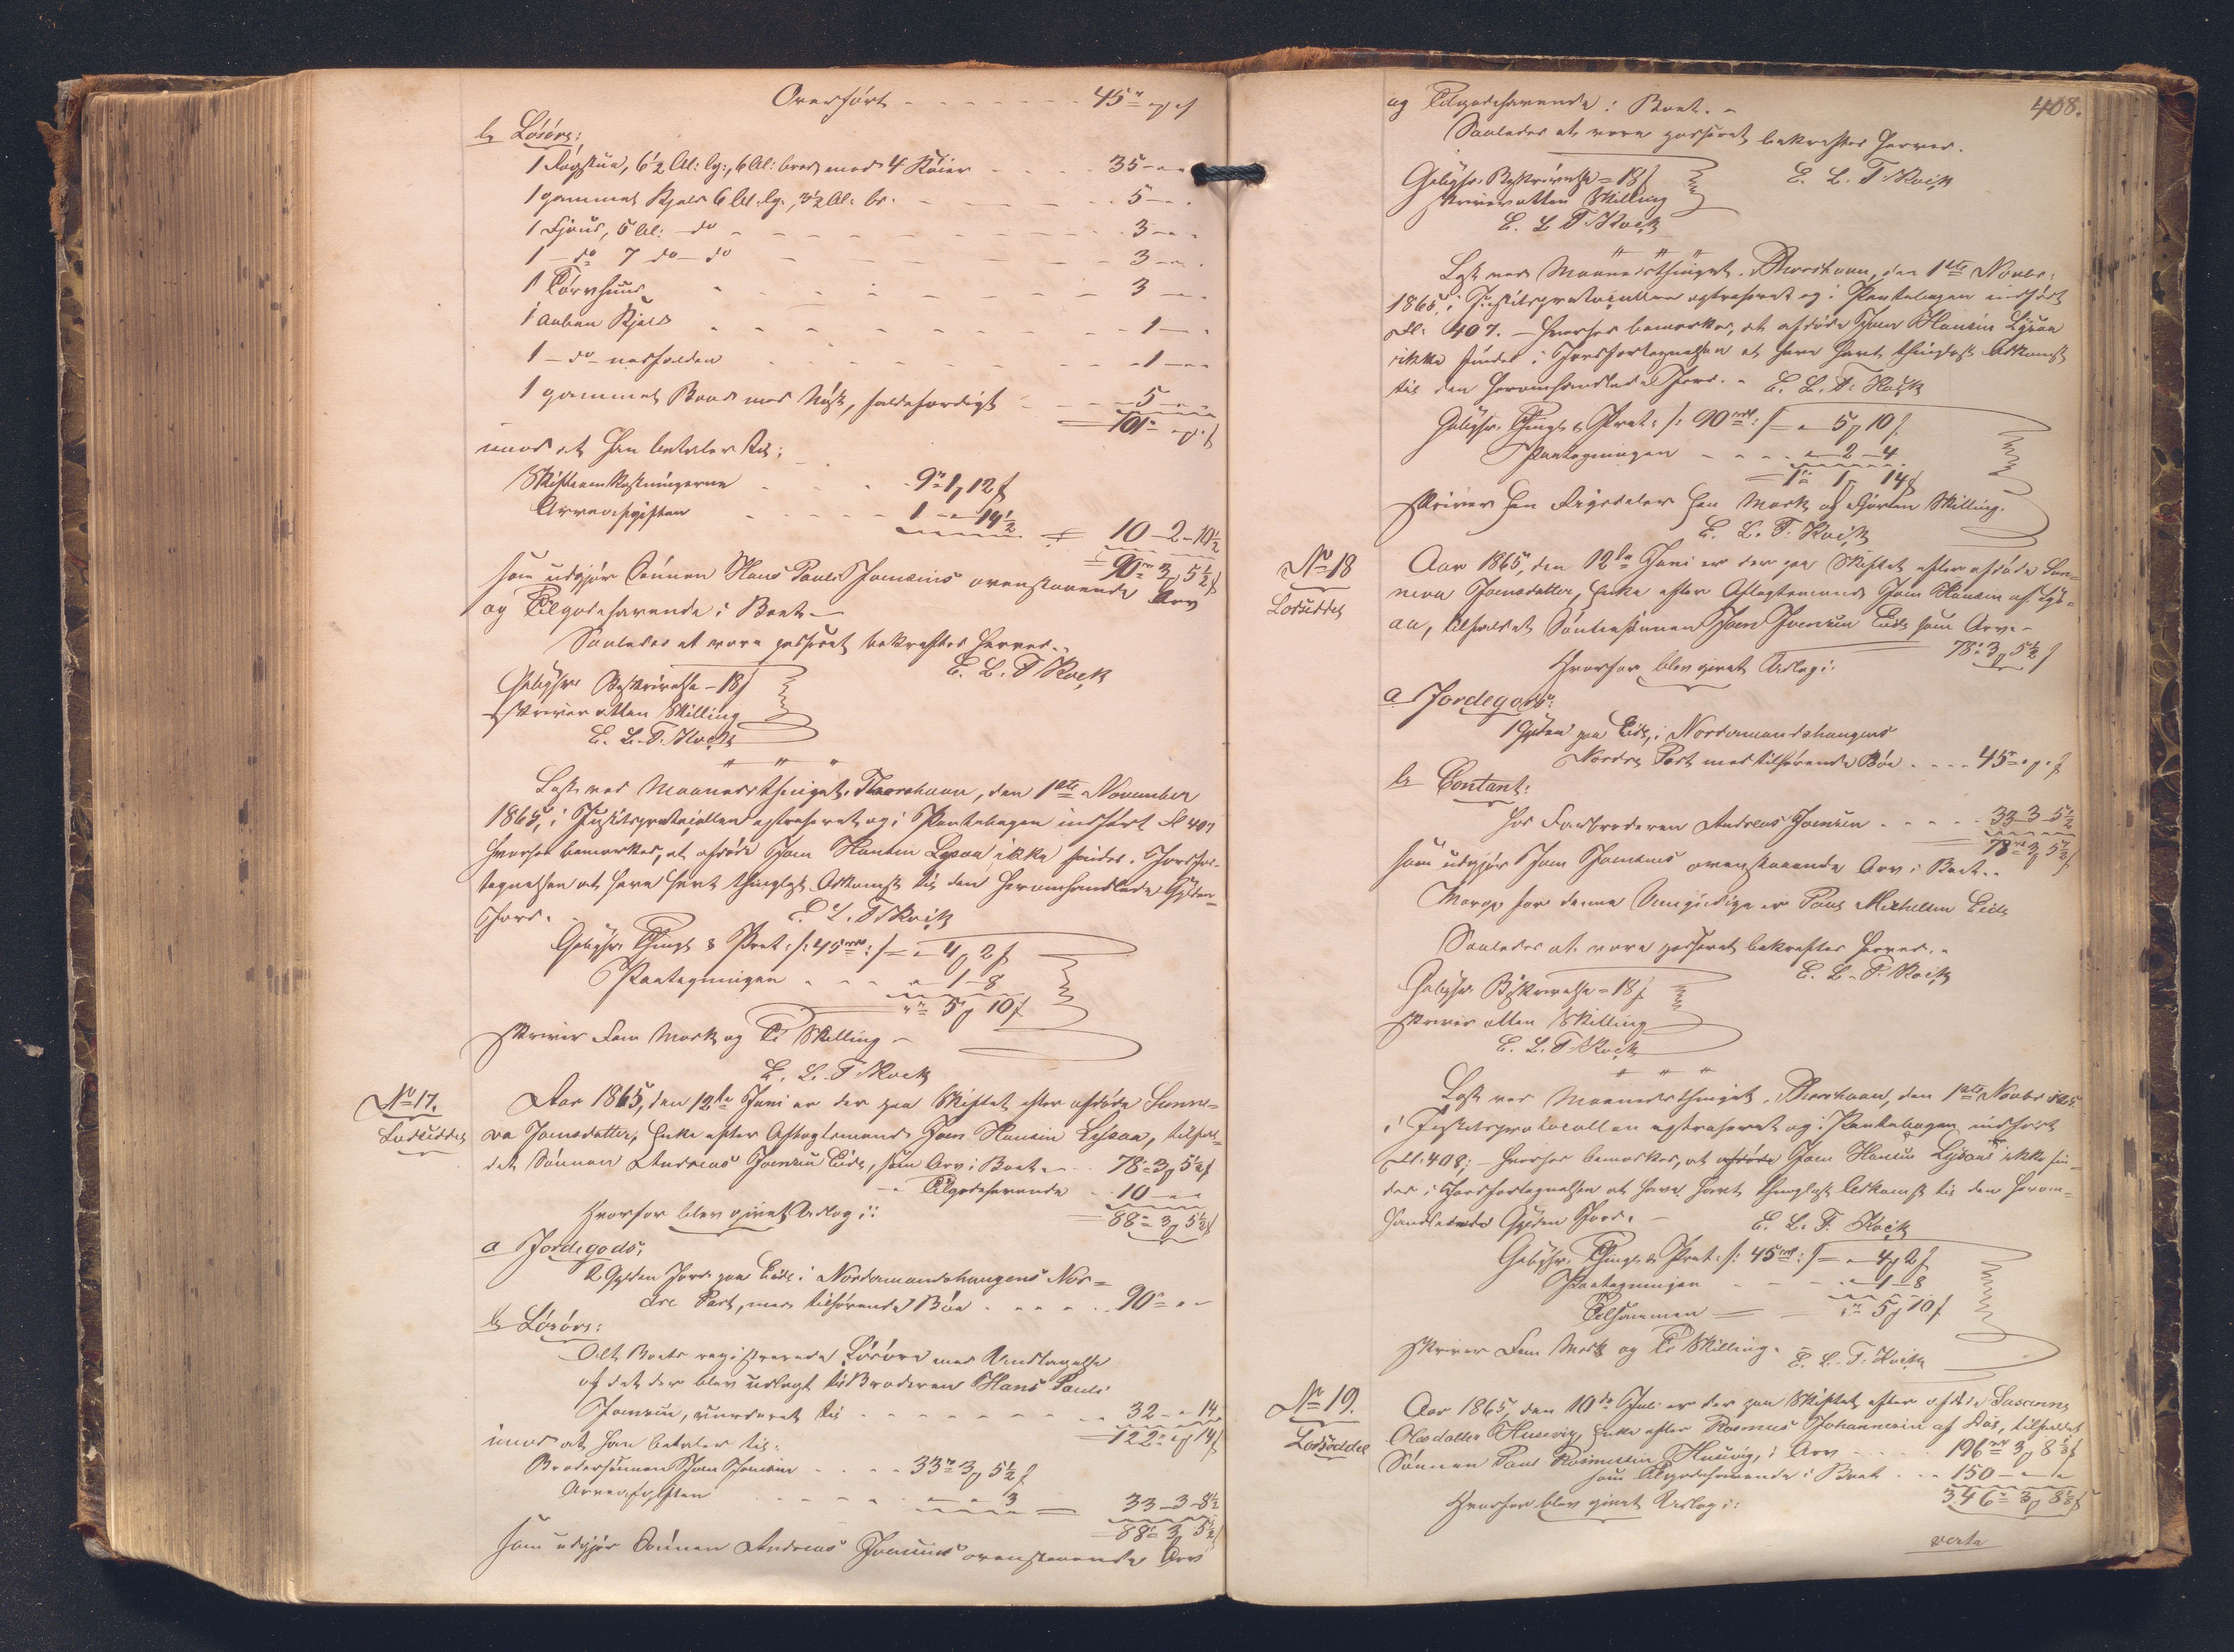 Overført - - - - - - - 45 rd " ꝑ " ſ
b Løsøre:
1 Røgstue, 6½ Al: lg:, 6 Al: bred med 4 Køier - - - 35 - " "
1 gammel Kjeld 6 Al. lg., 3½ Al: br. - - - - - 5 - " "
1 Fjøus, 5 Al: - do - - - - - - - 3 - " "
1 - do 7 do - do - - - - - - - 3 - " "
1 Tørvhuus - - - - - - - 3 - " "
1 aaben Kjeld - - - - - - - 1 - " "
1 - do nedfalden - - - - - - - 1 - " "
1 gammel Baad med Nøst, faldefærdigt - - - 5 - " "
101 " ꝑ " ſ
imod at han betaler til:
Skifteomkostningerne - - - 9 rd 1 ꝑ 12 ſ
Arveafgiften - - - 1 - " 14½ = 10 - 2 - 10½
= 90 rd 3 ꝑ 5½ ſ
som udgjør Sønnen Hans Pauli Joensens ovenstaaende Arv
og Tilgodehavende i Boet. -
Saaledes at være passeret bekræftes herved. -
E. L. T. Kock
Gebyhr. Beskrivelse - 18 ſ
skriver atten Skilling
E. L. T. Kock
" " "
Læst ved Maanedsthinget i Thorshavn, den 1ste November
1865, i Justitsprotocollen extraheret og i Pantebogen indført Fol 407
hvorhos bemærkes, at afdøde Joen Hansen Lysaa ikke findes i Jordfor-
tegnelsen at have havt thinglæst Adkomst til den heromhandlede Gylden
Jord. - E. L. T. Kock
Gebyhr. Thingl & Prot: /: 45 rd :/ = " 4 ꝑ 2 ſ
Paategningen - - - " 1 - 8
" rd 5 ꝑ 10 ſ
skriver Fem Mark og Ti Skilling -
E. L. T. Kock
No 17.
Lodseddel
Aar 1865, den 12te Juni er der paa Skiftet efter afdøde Sunne-
va Joensdatter, Enke efter Aftægtsmand Joen Hansen Lysaa, tilfal-
det Sønnen Andreas Joensen Eide, som Arv i Boet - 78 rd 3 ꝑ 5½ ſ
- " Tilgodehavende - 10 - " "
Hvorfor blev givet Udlæg i: = 88 rd 3 ꝑ 5½ ſ
a Jordegods:
2 Gylden Jord paa Eide i Nordermandshaugens Nor-
dre Part, med tilhørende Bøe - - - - 90 rd " "
b Løsøre:
Alt Boets registrerede Løsøre med Undtagelse
af det der blev udlagt til Broderen Hans Pauli
Joensen, vurderet til - - - - - - 32 - " 14
= 122 rd " ꝑ 14 ſ
imod at han betaler til:
Brodersønnen Joen Joensen - - - 33 rd 3 ꝑ 5½ ſ
Arveafgiften - - - - " - " 3 = 33 - 3 - 8½
= 88 rd 3 ꝑ 5½ ſ
som udgjør Sønnen Andreas Joensens ovenstaaende Arv
408.
og Tilgodehavende i Boet. -
Saaledes at være passeret bekræftes herved.
E. L. T. Kock
Gebyhr. Beskrivelse = 18 ſ
skriver atten Skilling
E. L. T. Kock
" " "
Læst ved Maanedsthinget i Thorshavn, den 1ste Novbr.
1865, i Justitsprotocollen extraheret og i Pantebogen indført
Fol: 407. - hvorhos bemærkes, at afdøde Joen Hansen Lysaa
ikke findes i Jordfortegnelsen at have havt thinglæst Adkomst
til den heromhandlede Jord. - E. L. T. Kock
Gebyhr. Thingl. & Prot: /: 90 rd :/ = " 5 ꝑ 10 ſ
Paategningen - - - " 2 - 4
= 1 rd 1 ꝑ 14 ſ
skriver Een Rigsdaler Een Mark og Fjorten Skilling.
E. L. T. Kock
No 18
Lodseddel
Aar 1865, den 12te Juni er der paa Skiftet efter afdøde Sun-
neva Joensdatter, Enke efter Aftægtsmand Joen Hansen af Lys-
aa, tilfaldet Sønnesønnen Joen Joensen Eide som Arv -
78 rd 3 ꝑ 5½ ſ
Hvorfor blev givet Udlæg i:
a Jordegods:
1 Gylden paa Eide, i Nordermandshaugens
Nordre Part med tilhørende Bøe - - - 45 rd " ꝑ " ſ
b Contant:
hos Farbroderen Andreas Joensen - - - - 33 - 3 - 5½
78 rd 3 ꝑ 5½ ſ
som udgjør Joen Joensens ovenstaaende Arv i Boet. -
Værge for denne Umyndige er Poul Michelsen Eide
Saaledes at være passeret bekræftes herved. -
E. L. T. Kock
Gebyhr. Beskrivelse = 18 ſ
skriver atten Skilling
E. L. T. Kock
" " "
Læst ved Maanedsthinget i Thorshavn, den 1ste Novbr 1865
i Justitsprotocollen extraheret og i Pantebogen indført
Fol. 408; - hvorhos bemærkes, at afdøde Joen Hansen Lysaa ikke fin-
des i Jordfortegnelsen at have havt thinglæst Adkomst til den herom-
handlede Gylden Jord. - E. L. T. Kock
Gebyhr. Thingl. & Prot: /: 45 rd :/ = " 4 ꝑ 2 ſ
Paategningen - - - " 1 - 8
Tilsammen = " rd 5 ꝑ 10 ſ
skriver Fem Mark og Ti Skilling. E. L. T. Kock
No 19.
Lodseddel
Aar 1865, den 10de Juli er der paa Skiftet efter afdøde Susanna
Olesdatter Husevig, Enke efter Rasmus Johannesen af Das, tilfaldet
Sønnen Poul Rasmussen Husevig, i Arv - - - 196 rd 3 ꝑ 8⅓ ſ
som Tilgodehavende i Boet - - 150 - " "
Hvorfor blev givet Udlæg i: 346 rd 3 ꝑ 8⅓ ſ
verte